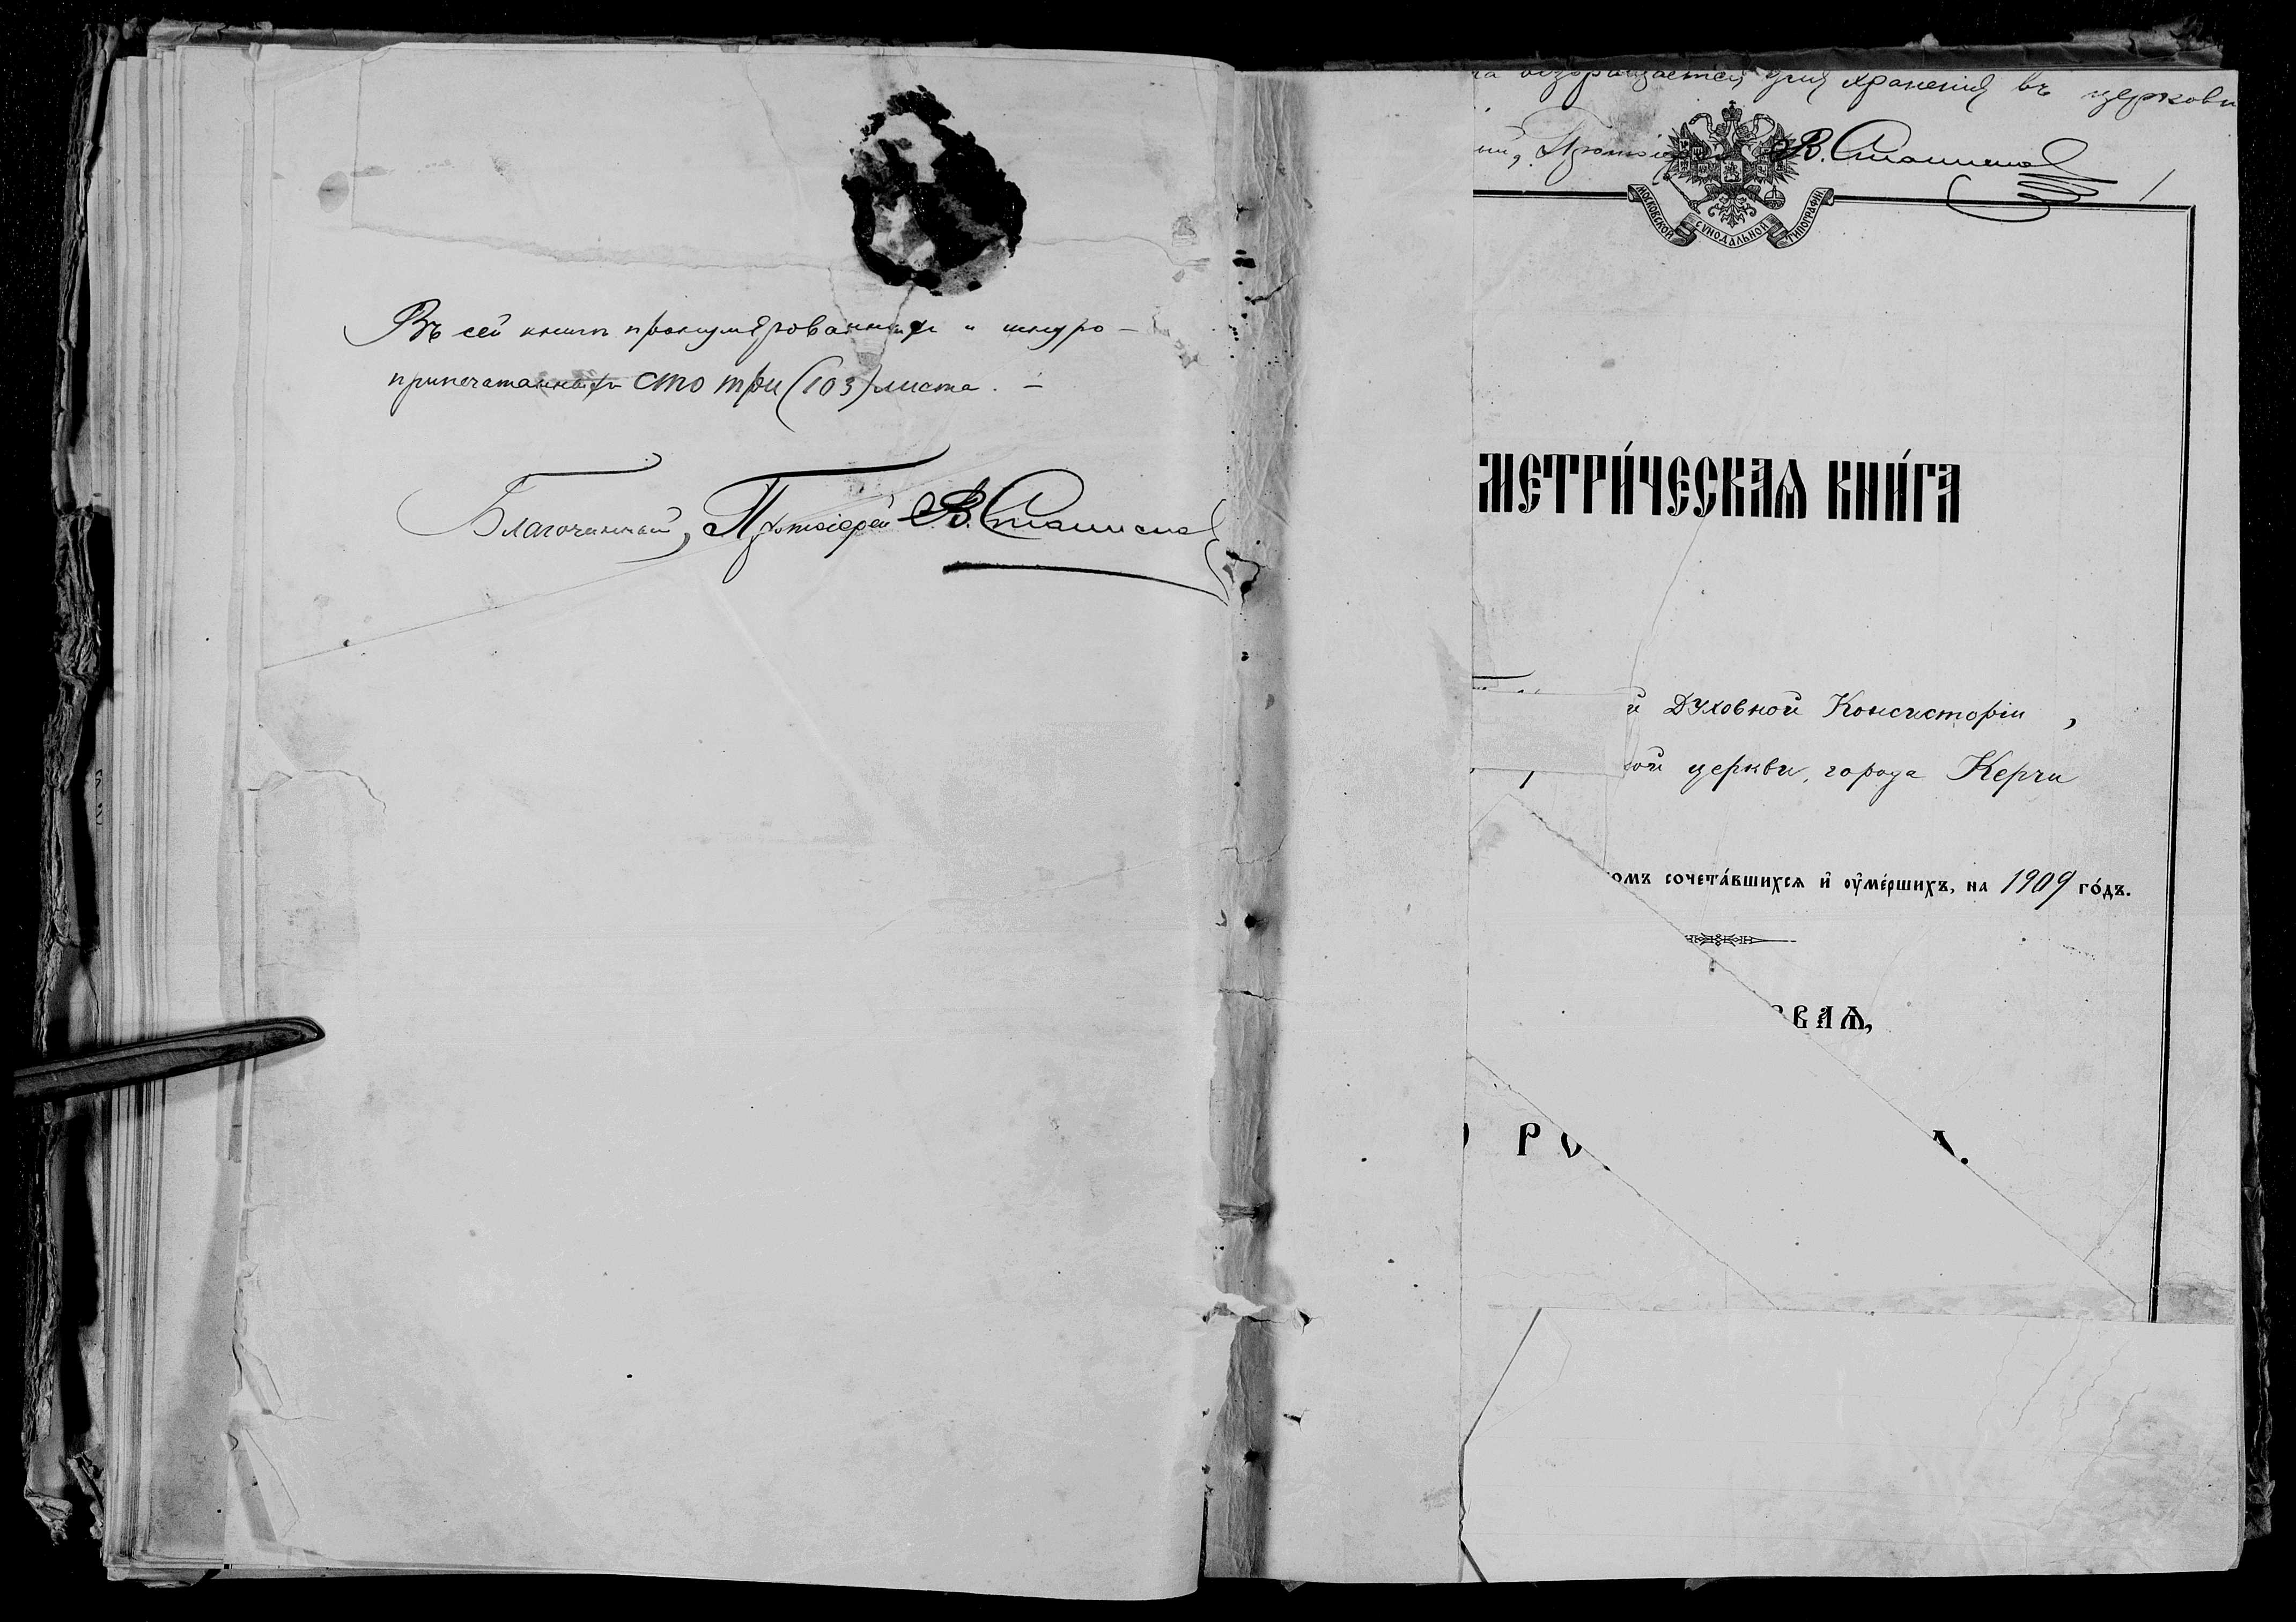 Въ сей книгѣ пронумѣрованныхъ и шнуро-
припечатанныхъ сто три (103) листа. –
Благочинный, Протоіерей В.
возвращается для храненія въ церковь
Протоіерей В.
МОСКОВСКОЙ СѴНОДАЛЬНОЙ ТИПОГРАФІИ
1
МЕТРИ́ЧЕСКАѦ КНИ́ГА
й Духовной Консисторіи,
ой церкви, города Керчи
омъ сочета́вшихсѧ и҆ оу҆ме́ршихъ, на 1909 го́дъ.
ВАѦ,
РО